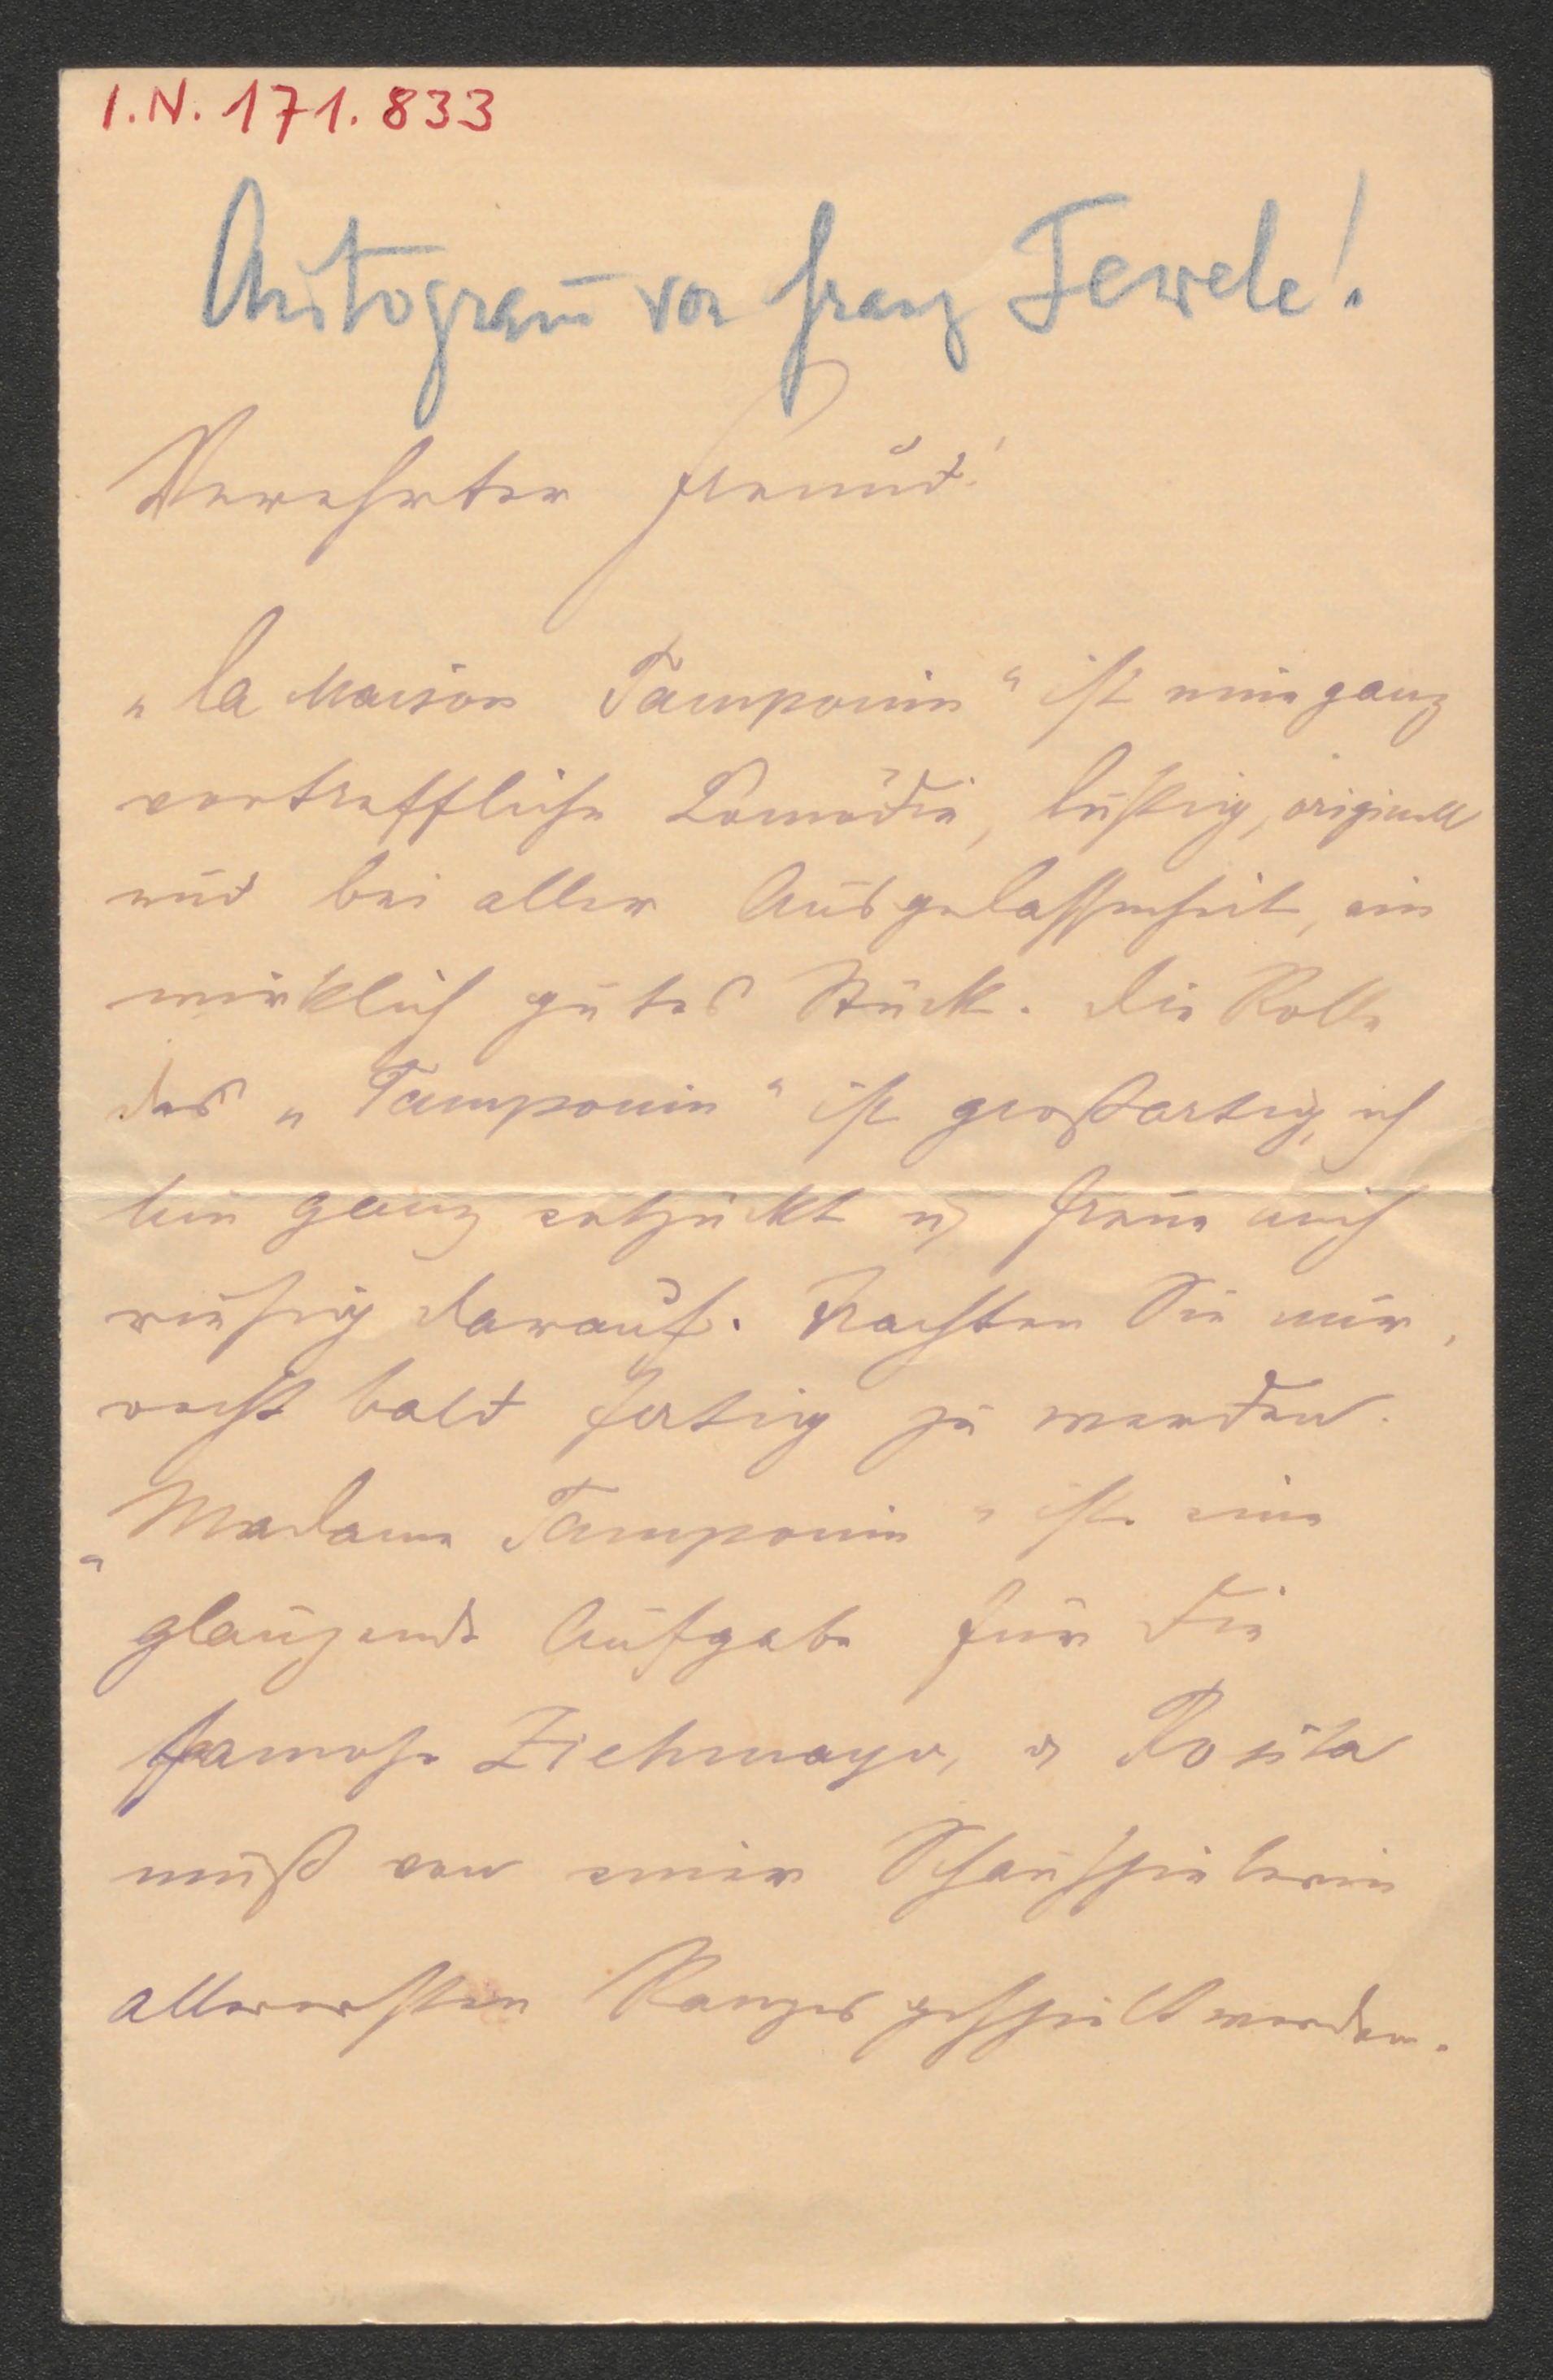 I.N. 171.833
Autogram̅ von Franz Tewele!
Verehrter Freund!
„La Maison Tamponin“ ist eine ganz
vortreffliche Comödie, lustig, originell
und bei aller Ausgelassenheit, ein
wirklich gutes Stück. Die Rolle
des „Tamponin“ ist großartig, ich
bin ganz entzückt u freue mich
riesig darauf. Trachten Sie nur,
recht bald fertig zu werden.
„Madame Tamponin“ ist eine
glänzende Aufgabe für die
famose Ziehmayr, u Rosita
muß von einer Schauspielerin
allerersten Ranges gespielt werden.